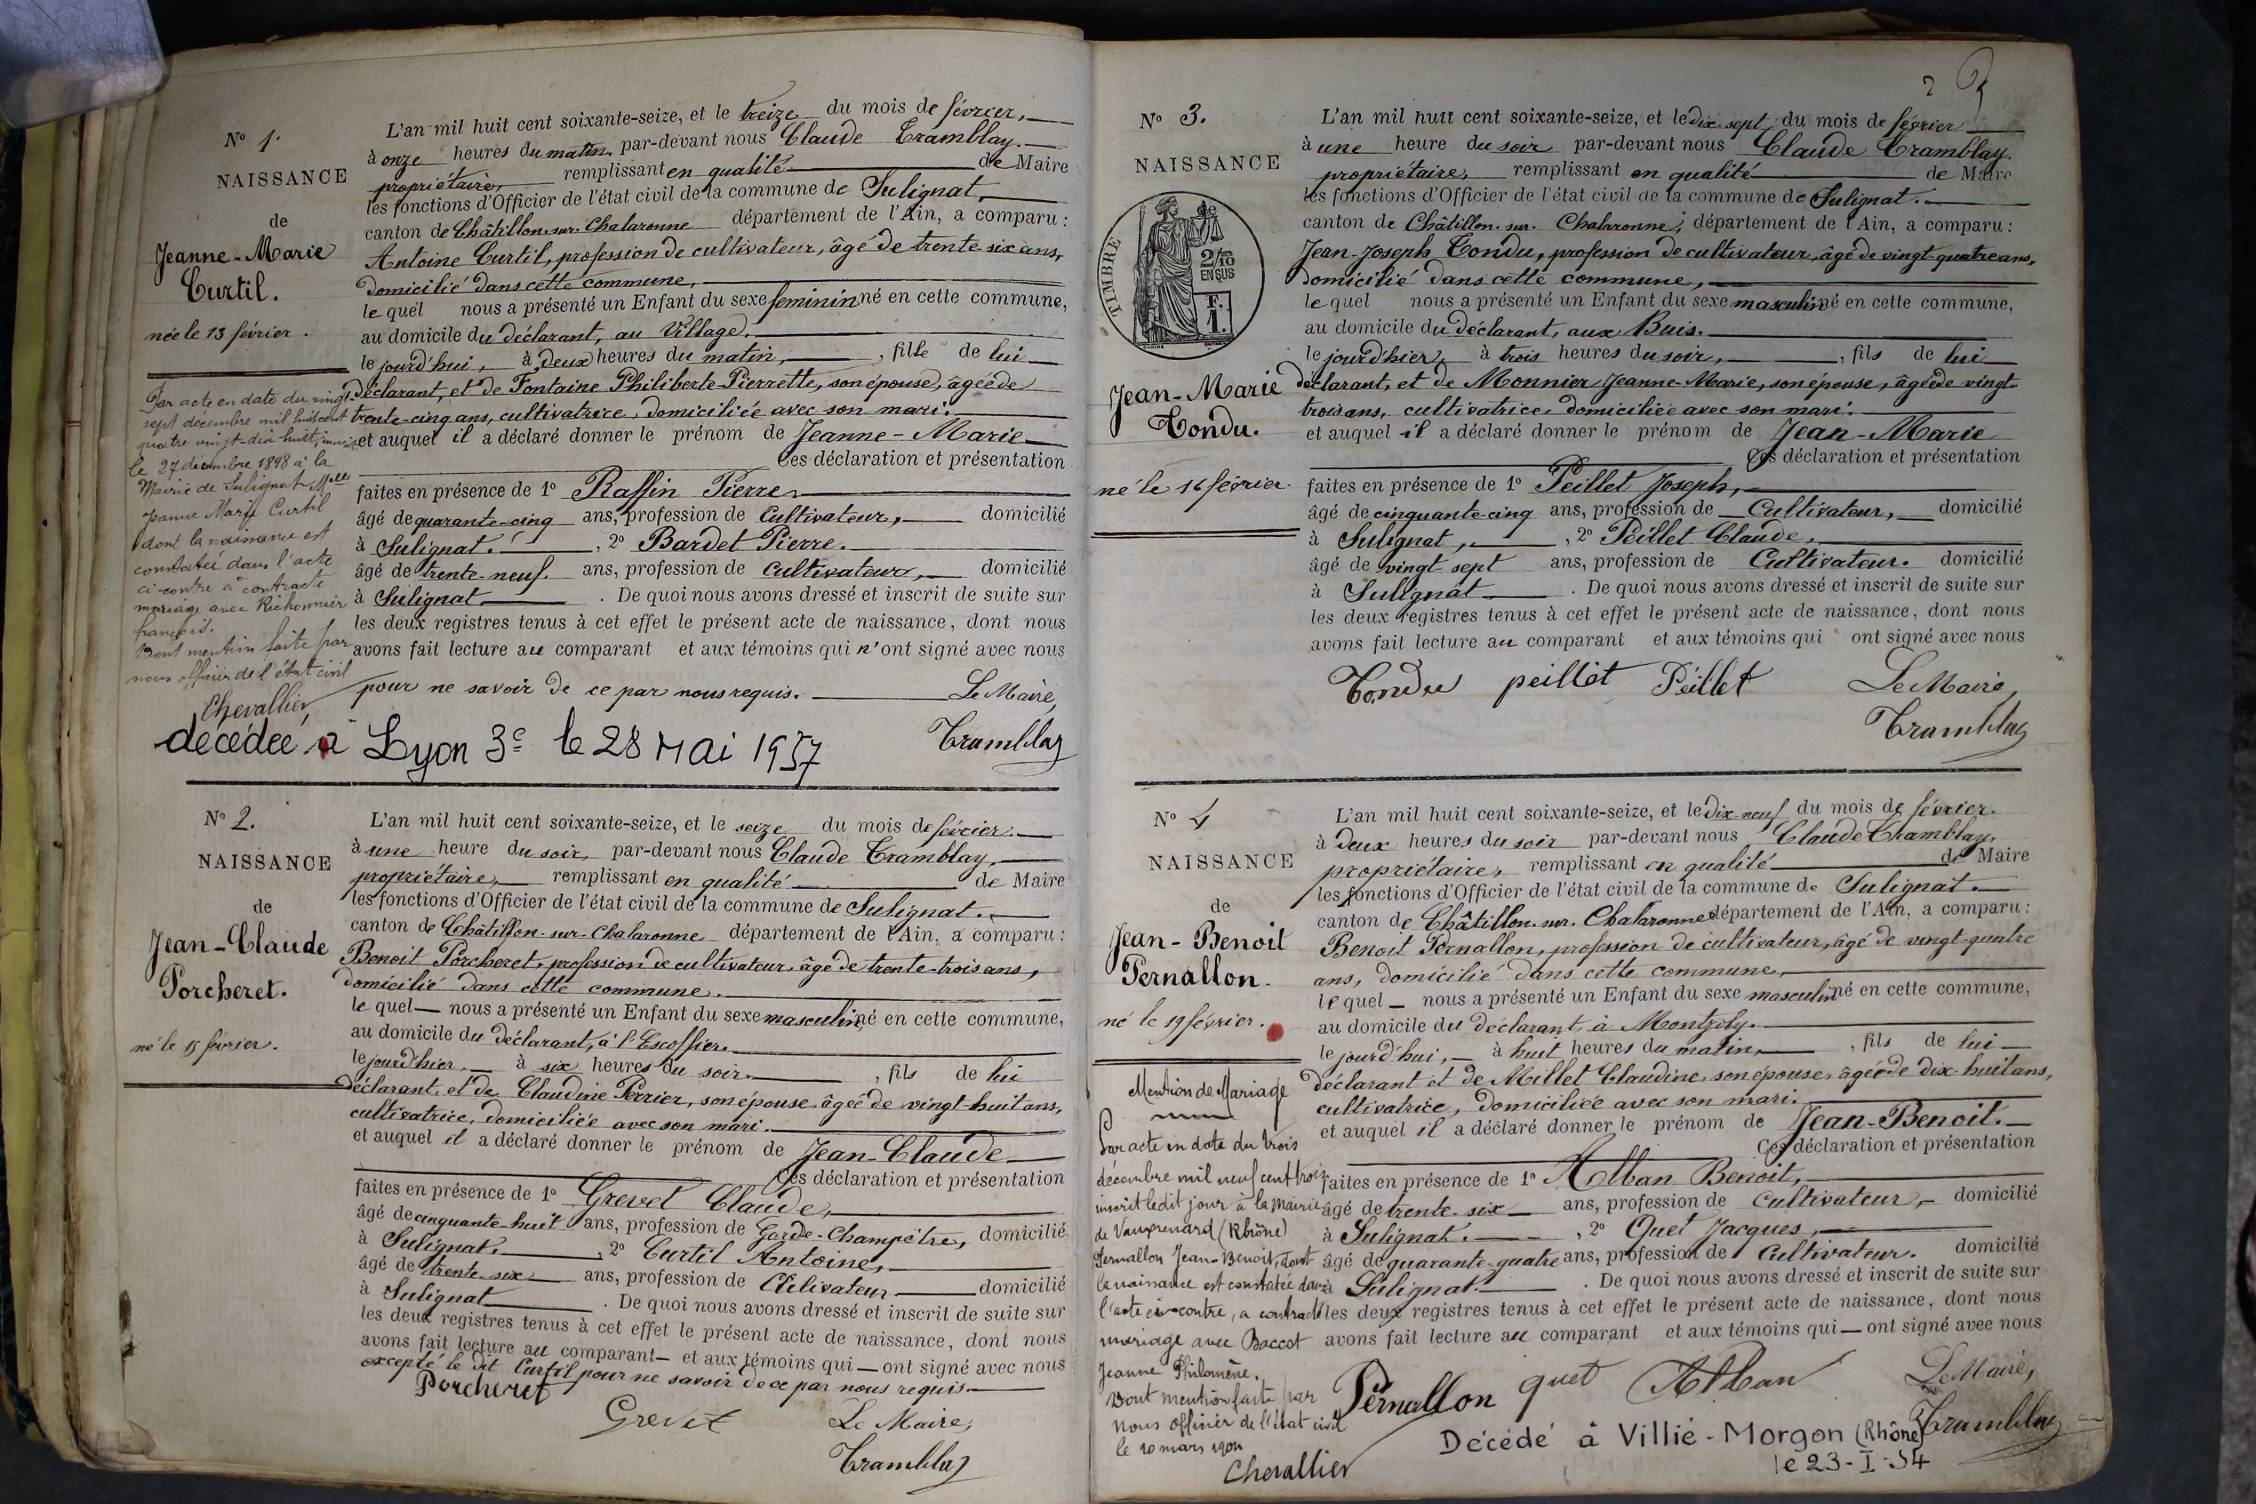 N° 1.
NAISSANCE
de
Jeanne-Marie
Curtil.
née le 13 février.
Par acte en date du vingt-
sept décembre mil huit cent
quatre vingt-dix huit, inscrit
le 27 décembre 1898 à la
Mairie de Sulignat Melle
Jeanne Marie Curtil
dont la naissance est
constatée dans l'acte
ci-contre a contracté
mariage avec Richonnier
françois.
Dont mention faite par
nous officier de l'état civil
Chevallier
L'an mil huit cent soixante-seize, et le treize du mois de février,
à onze heures du matin, par-devant nous Claude Tramblay.
propriétaire, remplissant en qualité de Maire
les fonctions d'Officier de l'état civil de la commune de Sulignat,
canton de Châtillon-sur-Chalaronne département de l'Ain, a comparu :
Antoine Curtil, profession de cultivateur, âgé de trente six ans,
domicilié dans cette commune,
le quel nous a présenté un Enfant du sexe féminin né en cette commune,
au domicile du déclarant, au Village,
le jourd'hui, à deux heures du matin, , fille de lui
déclarant, et de Fontaine Philiberte-Pierrette, son épouse, âgée de
trente-cinq ans, cultivatrice, domiciliée avec son mari.
et auquel il a déclaré donner le prénom de Jeanne-Marie
Ces déclaration et présentation
faites en présence de 1° Raffin Pierre,
âgé de quarante-cinq ans, profession de Cultivateur, domicilié
à Sulignat. , 2° Bardet Pierre.
âgé de trente-neuf. ans, profession de Cultivateur, domicilié
à Sulignat . De quoi nous avons dressé et inscrit de suite sur
les deux registres tenus à cet effet le présent acte de naissance, dont nous
avons fait lecture au comparant et aux témoins qui n'ont signé avec nous
pour ne savoir de ce par nous requis. Le Maire,
Tramblay
décédée à Lyon 3e le 28 Mai 1957
N° 2.
NAISSANCE
de
Jean-Claude
Porcheret.
né le 15 février.
L'an mil huit cent soixante-seize, et le seize du mois de février.
à une heure du soir, par-devant nous Claude Tramblay,
propriétaire, remplissant en qualité de Maire
les fonctions d'Officier de l'état civil de la commune de Sulignat.
canton de Châtillon-sur-Chalaronne département de l'Ain, a comparu :
Benoit Porcheret, profession de cultivateur, âgé de trente-trois ans,
domicilié dans cette commune.
le quel nous a présenté un Enfant du sexe masculin né en cette commune,
au domicile du déclarant, à l'Escoffier.
le jourd'hier, à six heures du soir. , fils de lui
déclarant, et de Claudine Perrier, son épouse, âgée de vingt-huit ans,
cultivatrice, domiciliée avec son mari.
et auquel il a déclaré donner le prénom de Jean-Claude
Ces déclaration et présentation
faites en présence de 1° Grevet Claude,
âgé de cinquante-huit ans, profession de Garde-Champêtre, domicilié
à Sulignat. , 2° Curtil Antoine,
âgé de trente six ans, profession de Cultivateur domicilié
à Sulignat . De quoi nous avons dressé et inscrit de suite sur
les deux registres tenus à cet effet le présent acte de naissance, dont nous
avons fait lecture au comparant et aux témoins qui ont signé avec nous
excepté le dit Curtil pour ne savoir de ce par nous requis.
Porcheret
Grevet Le Maire,
Tramblay
2
N° 3.
NAISSANCE
TIMBRE
2/10
EN SUS
F.
1.
Jean-Marie
Tondu.
né le 16 février.
L'an mil huit cent soixante-seize, et le dix sept du mois de février
à une heure du soir par-devant nous Claude Tramblay.
propriétaire, remplissant en qualité de Maire
les fonctions d'Officier de l'état civil de la commune de Sulignat.
canton de Châtillon-sur-Chalaronne, département de l'Ain, a comparu :
Jean-Joseph Tondu, profession de cultivateur, âgé de vingt-quatre ans,
domicilié dans cette commune,
le quel nous a présenté un Enfant du sexe masculin né en cette commune,
au domicile du déclarant, aux Buis.
le jourd'hier, à trois heures du soir, , fils de lui
déclarant, et de Monnier Jeanne-Marie, son épouse, âgée de vingt
trois ans, cultivatrice, domiciliée avec son mari.
et auquel il a déclaré donner le prénom de Jean-Marie
Ces déclaration et présentation
faites en présence de 1° Peillet Joseph,
âgé de cinquante-cinq ans, profession de Cultivateur, domicilié
à Sulignat, , 2° Peillet Claude,
âgé de vingt sept ans, profession de Cultivateur. domicilié
à Sulignat . De quoi nous avons dressé et inscrit de suite sur
les deux registres tenus à cet effet le présent acte de naissance, dont nous
avons fait lecture au comparant et aux témoins qui ont signé avec nous
Tondu peillet Peillet Le Maire,
Tramblay
N° 4
NAISSANCE
de
Jean-Benoit
Pernallon.
né le 19 février.
Mention de Mariage
Par acte en date du trois
décembre mil neuf cent trois
inscrit ledit jour à la mairie
de Vauxrenard (Rhône)
Pernallon Jean-Benoit, dont
la naissance est constatée dans
l'acte ci-contre, a contracté
mariage avec Baccot
Jeanne Philomène.
Dont mention faite par
Nous officier de l'état civil
le 10 mars 1904
Chevallier
L'an mil huit cent soixante-seize, et le dix-neuf du mois de février.
à deux heures du soir par-devant nous Claude Tramblay,
propriétaire, remplissant en qualité de Maire
les fonctions d'Officier de l'état civil de la commune de Sulignat.
canton de Châtillon-sur-Chalaronne département de l'Ain, a comparu :
Benoit Pernallon, profession de cultivateur, âgé de vingt-quatre
ans, domicilié dans cette commune,
le quel nous a présenté un Enfant du sexe masculin né en cette commune,
au domicile du déclarant, à Montzoly.
le jourd'hui, à huit heures du matin, , fils de lui
déclarant et de Millet Claudine, son épouse, âgée de dix-huit ans,
cultivatrice, domiciliée avec son mari.
et auquel il a déclaré donner le prénom de Jean-Benoit.
Ces déclaration et présentation
faites en présence de 1° Alban Benoit,
âgé de trente-six ans, profession de Cultivateur, domicilié
à Sulignat. , 2° Quet Jacques,
âgé de quarante-quatre ans, profession de Cultivateur. domicilié
à Sulignat. . De quoi nous avons dressé et inscrit de suite sur
les deux registres tenus à cet effet le présent acte de naissance, dont nous
avons fait lecture au comparant et aux témoins qui ont signé avec nous
Pernallon quet Alban Le Maire,
Tramblay
Décédé à Villié-Morgon (Rhône)
le 23-I-54